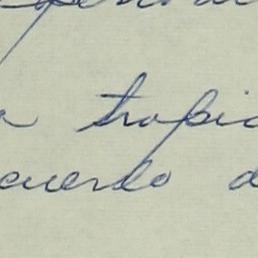 a tropic
cuerdo d